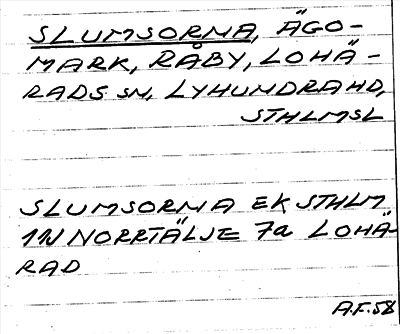 SLUMSORNA, ÄGO-
MARK, RÅBY, LOHÄ-
RADS SN, LYHUNDRA HD,
STHLMSL
SLUMSORNA EK STHLM
11N NORRTÄLJE 7a LOHÄ-
RAD
A.F.58